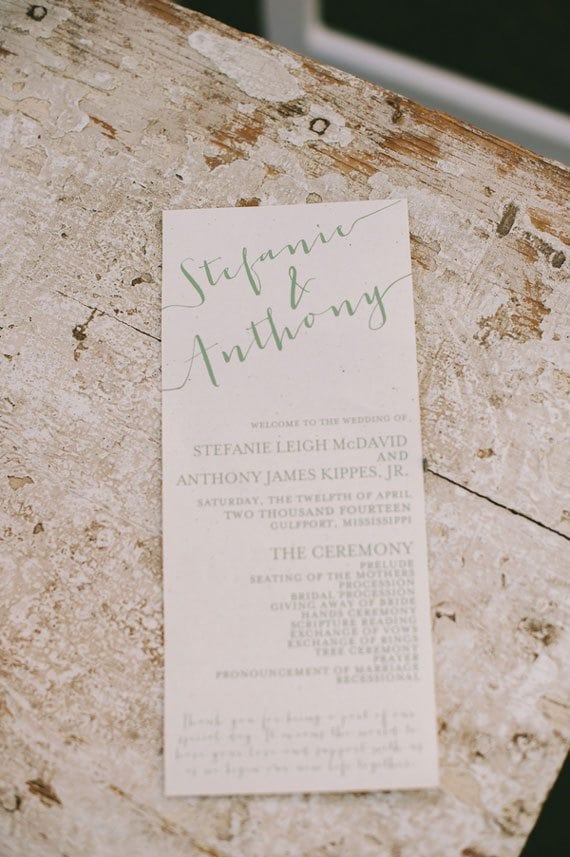 Stefanie
&
Anthony
WELCOME TO THE WEDDING OF,
STEFANIE LEIGH McDAVID
AND
ANTHONY JAMES KIPPES, JR.
SATURDAY, THE TWELFTH OF APRIL
TWO THOUSAND FOURTEEN
GULFPORT, MISSISSIPPI
THE CEREMONY
PRELUDE
SEATING OF THE MOTHERS
PROCESSION
BRIDAL PROCESSION
GIVING AWAY OF BRIDE
HANDS CEREMONY
SCRIPTURE READING
EXCHANGE OF VOWS
EXCHANGE OF RINGS
TREE CEREMONY
PRAYER
PRONOUNCEMENT OF MARRIAGE
RECESSIONAL
Thank you for being a part of our
special day. It means the world to
have your love and support with us
as we begin our new life together.